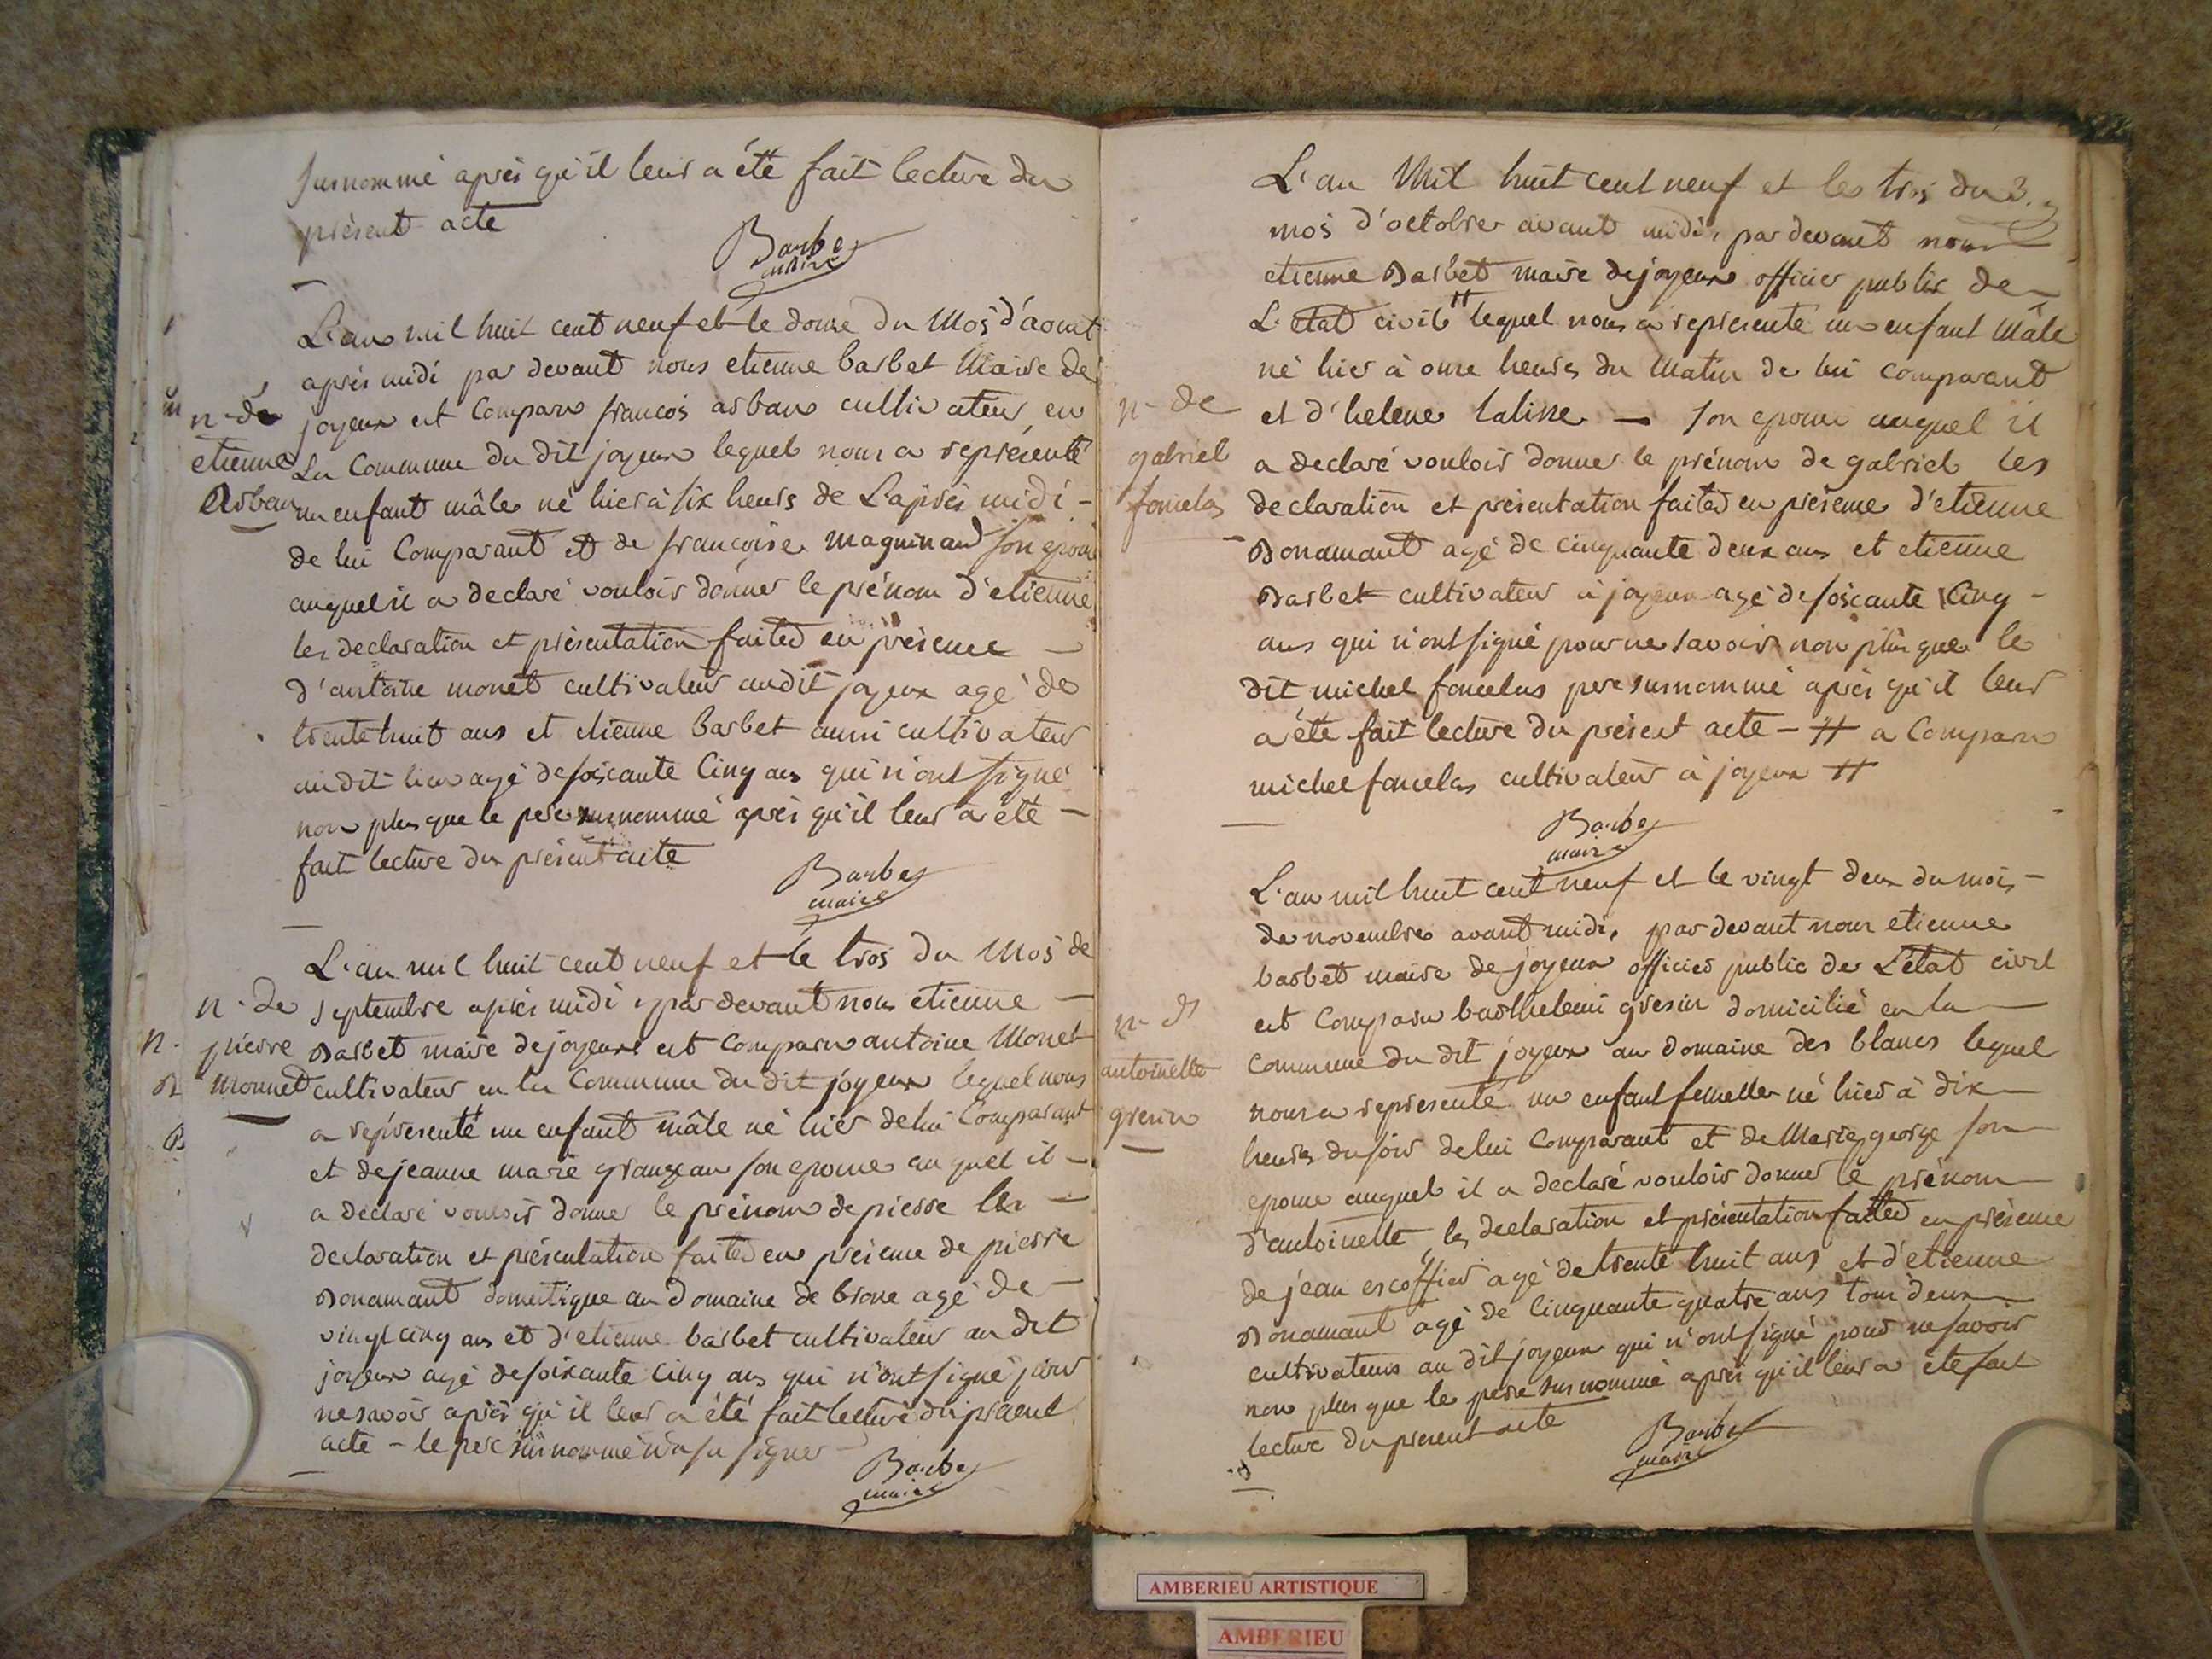 surnommé après qu'il leur a été fait lecture du
présent acte
Barbet
maire
L'an mil huit cent neuf et le douze du mois d'aout
après midi par devant nous etienne barbet Maire de
n. de joyeux est Comparu françois arban cultivateur en
etienne La Commune du dit joyeux lequel nous a représenté
Arban un enfant mâle né hier à six heurs de L'après midi -
de lui Comparant et de françoise maguinand son epouse
auquel il a declaré vouloir donner le prénom d'etienne
les declaration et présentation faites en présence -
d'antoine monet cultivateur audit joyeux agé de
trente huit ans et etienne barbet aussi cultivateur
audit lieu agé de soiscante Cinq ans qui n'ont signé
non plus que le pere surnommé après qu'il leur a été -
fait lecture du présent acte
Barbet
maire
L'an mil huit cent neuf et le trois du Mois de
n. de septembre après midi, par devant nous etienne -
pierre Barbet maire de joyeux est Comparu antoine Monet
monnet cultivateur en la Commune du dit joyeux lequel nous
a représenté un enfant mâle né hier de lui Comparant
et de jeanne marie grangean son epouse auquel il -
a declaré vouloir donner le prénom de pierre les -
declaration et présentation faites en présence de pierre
Bonamant domestique au Domaine de brone agé de -
vingt cinq ans et d'etienne barbet cultivateur au dit
joyeux agé de soixante Cinq ans qui n'ont signé pour
ne savoir après qu'il leur a été fait lecture du présent
acte - le pere surnommé n'a su signer -
Barbet
maire
L'an Mil huit cent neuf et le trois du 3.
mois d'octobre avant midi, par devant nous
etienne Barbet maire de joyeux officier public de -
L'état civil # lequel nous a représenté un enfant Mâle
né hier à onze heures du Matin de lui comparant
n. de et d'helene taline - son epouse auquel il
gabriel a declaré vouloir donner le prénom de gabriel les
foncelas declaration et présentation faites en présence d'etienne
Bonamant agé de cinquante deux ans et etienne
Barbet cultivateur à joyeux agé de soiscante Cinq -
ans qui n'ont signé pour ne savoir non plus que le
dit michel foncelas pere surnommé après qu'il leur
a été fait lecture du présent acte - # a Comparu
michel foncelas cultivateur à joyeux #
Barbet
maire
L'an mil huit cent neuf et le vingt deux du mois -
de novembre avant midi, par devant nous etienne
barbet maire de joyeux officier public de L'état civil
n. d' est Comparu barthelemi gresin domicilié en la
antoinette commune du dit joyeux au domaine des blancs lequel
gresin nous a représenté un enfant femelle né hier à dix
heures du soir de lui Comparant et de Marie george son
epouse auquel il a declaré vouloir donner le prénom
d'antoinette les declaration et présentation faites en présence
de jean escoffier agé de trente huit ans et d'etienne
Bonamant agé de Cinquante quatre ans tous deux
cultivateurs au dit joyeux qui n'ont signé pour ne savoir
non plus que le pere surnommé après qu'il leur a été fait
lecture du present acte
Barbet
maire
AMBERIEU ARTISTIQUE
AMBERIEU